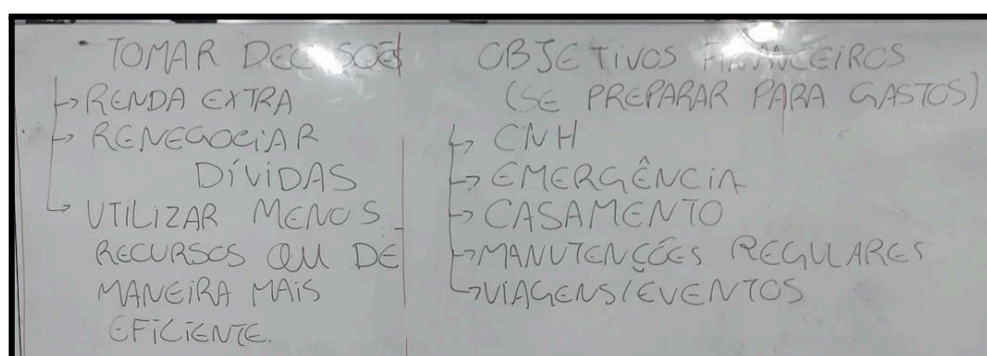 TOMAR DECISÕES
→ RENDA EXTRA
→ RENEGOCIAR
DÍVIDAS
→ UTILIZAR MENOS
RECURSOS OU DE
MANEIRA MAIS
EFICIENTE.
OBJETIVOS FINANCEIROS
(SE PREPARAR PARA GASTOS)
→ CNH
→ EMERGÊNCIA
→ CASAMENTO
→ MANUTENÇÕES REGULARES
→ VIAGENS/EVENTOS